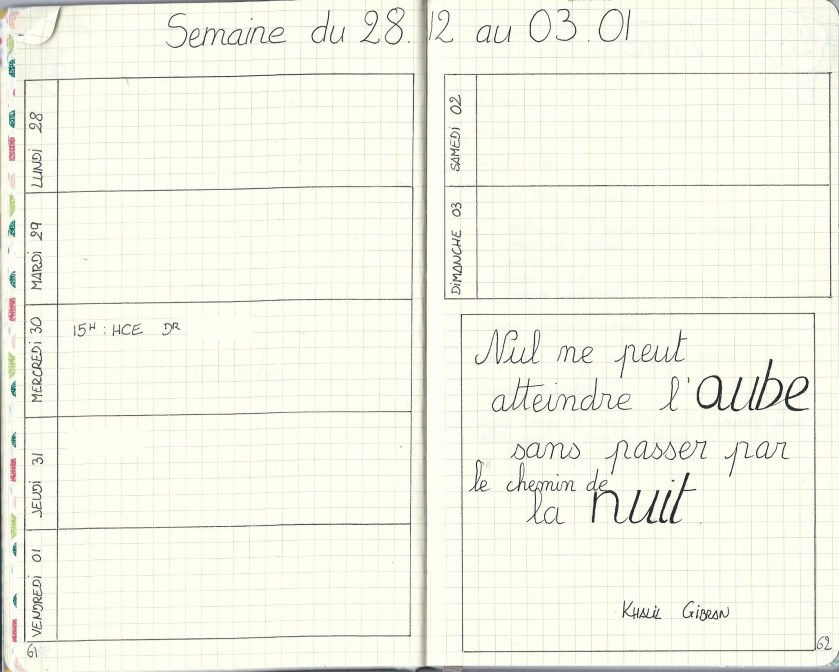 Semaine du 28.12 au 03.01
LUNDI 28
MARDI 29
MERCREDI 30
15H : HCE DR
JEUDI 31
VENDREDI 01
61
SAMEDI 02
DIMANCHE 03
Nul ne peut
atteindre l'aube
sans passer par
le chemin de
la nuit.
KHALIL GIBRAN
62